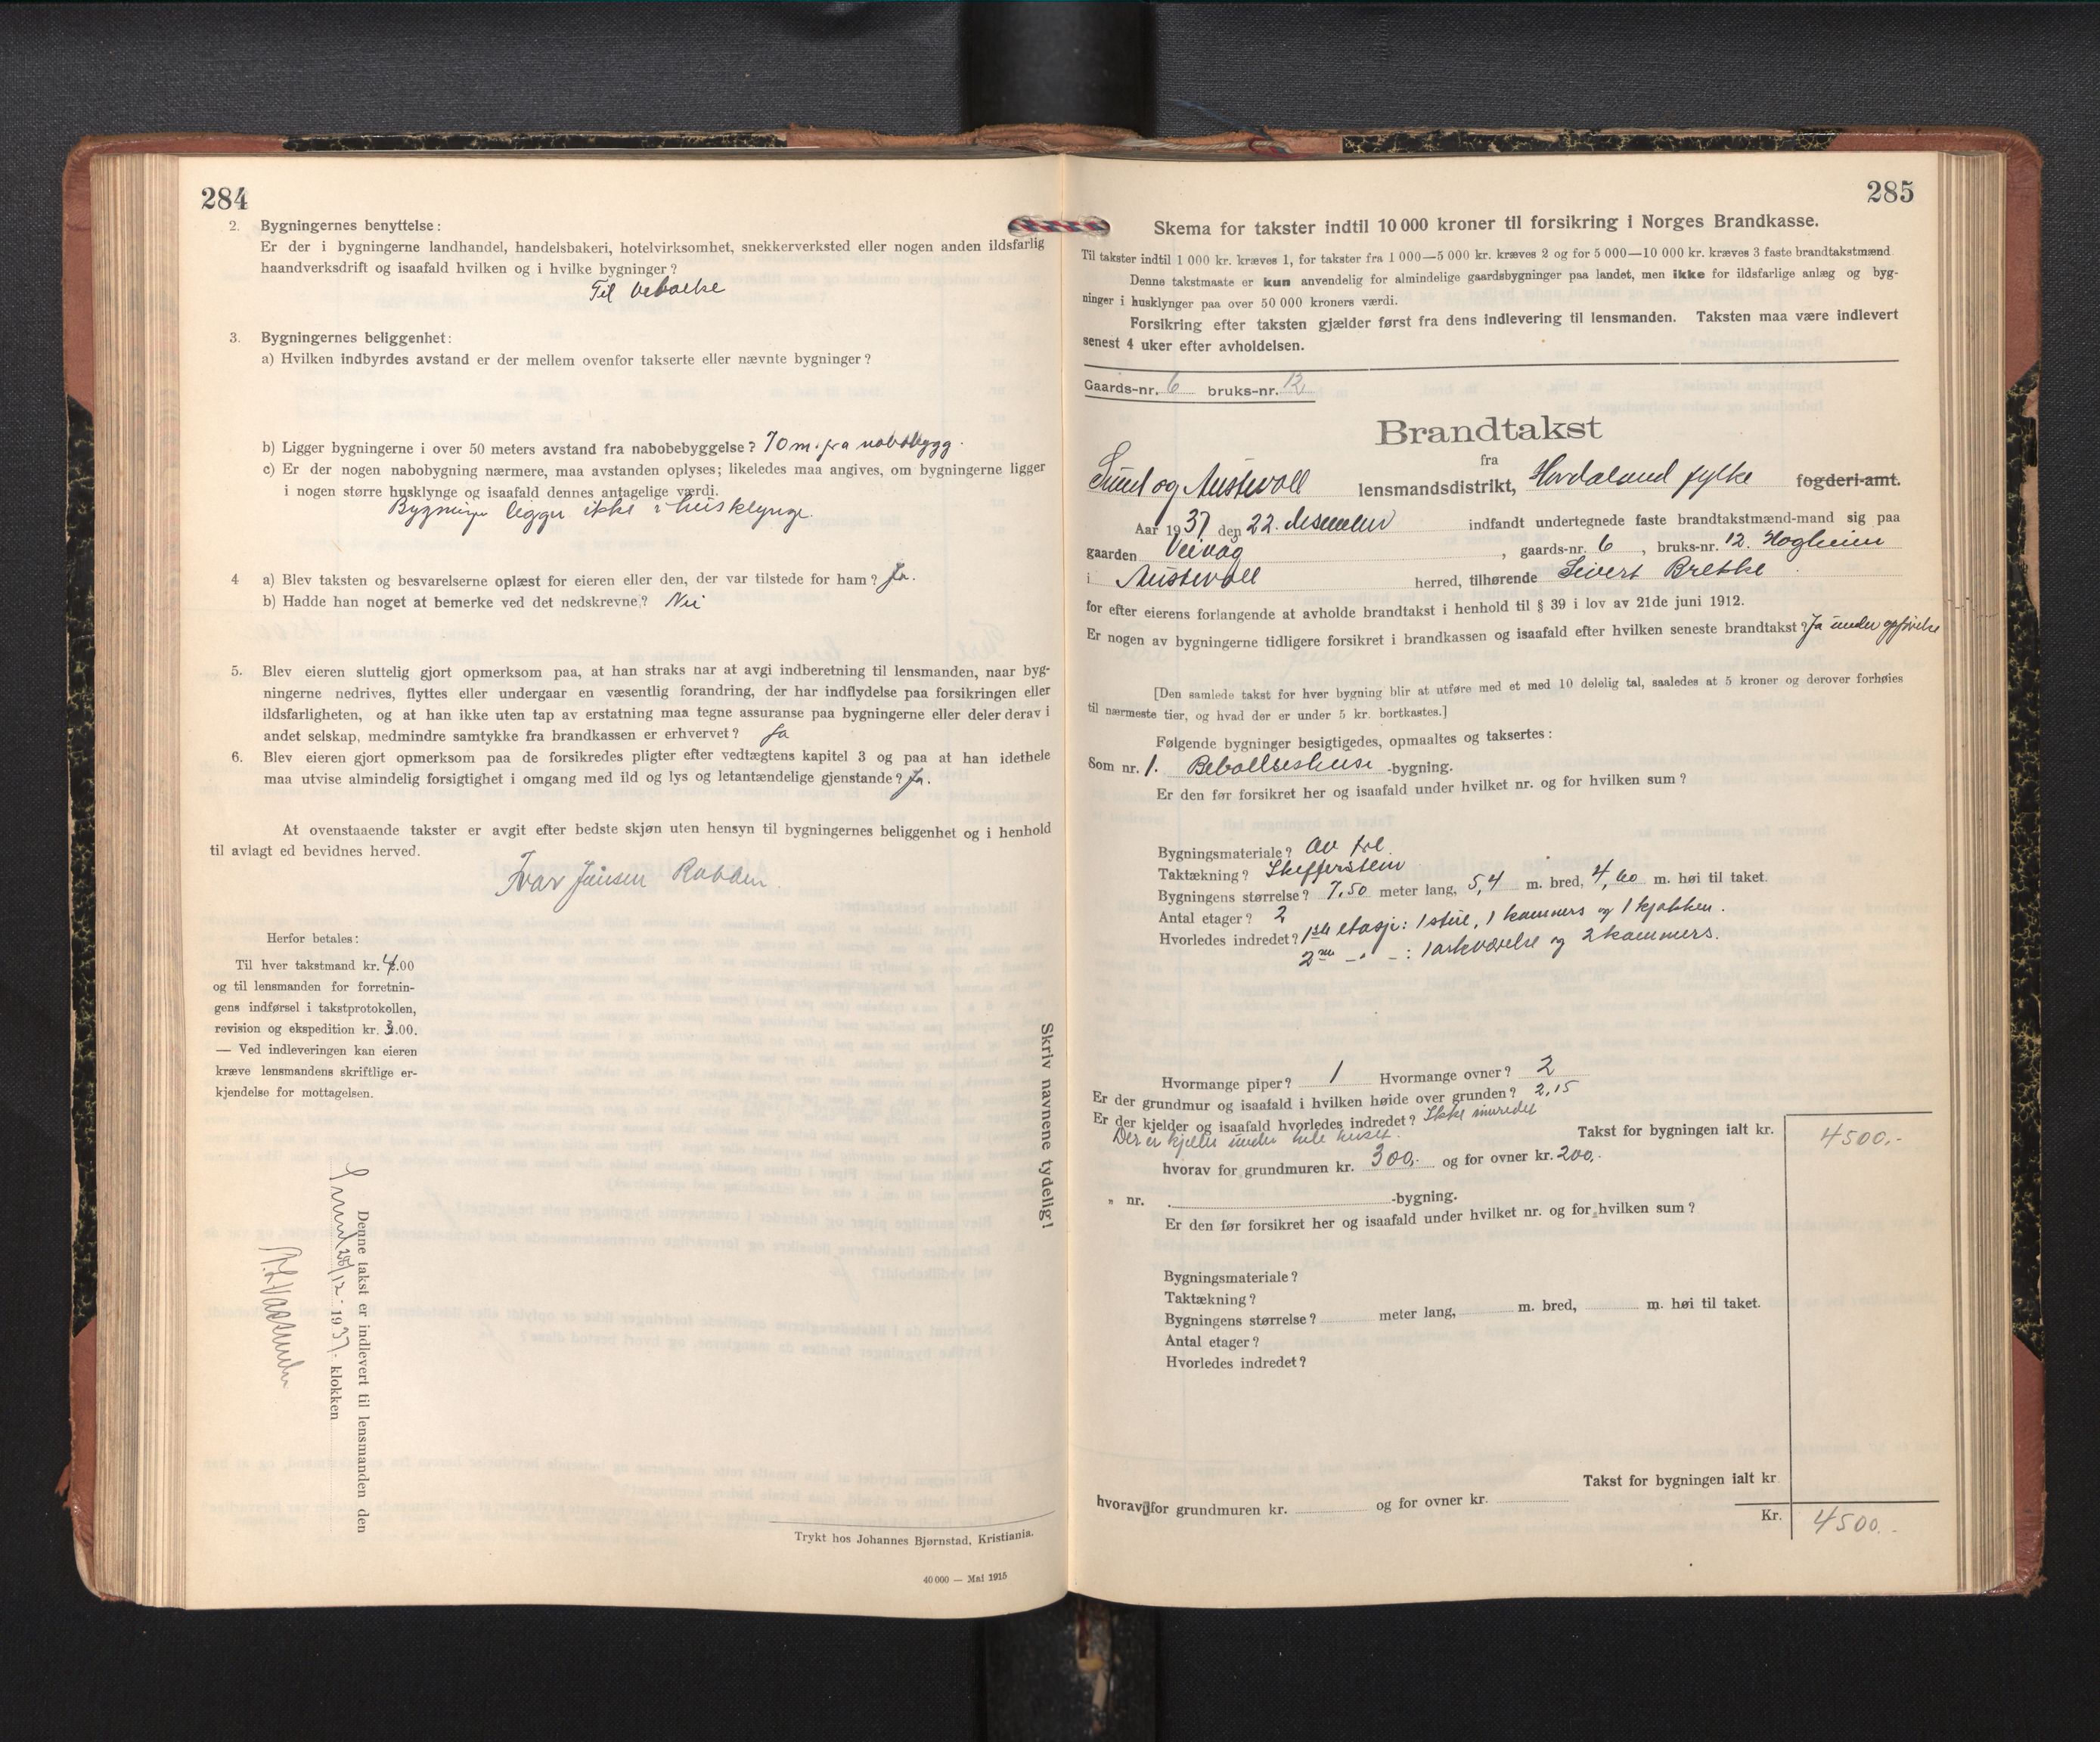 284
2. Bygningernes benyttelse:
Er der i bygningerne landhandel, handelsbakeri, hotelvirksomhet, snekkerverksted eller nogen anden ildsfarlig
haandverksdrift og isaafald hvilken og i hvilke bygninger?
Til beboelse
3. Bygningernes beliggenhet:
a) Hvilken indbyrdes avstand er der mellem ovenfor takserte eller nævnte bygninger?
b) Ligger bygningerne i over 50 meters avstand fra nabobebyggelse? 70 m. fra nabobygg.
c) Er der nogen nabobygning nærmere, maa avstanden oplyses; likeledes maa angives, om bygningerne ligger
i nogen større husklynge og isaafald dennes antagelige værdi.
Bygninger ligger ikke i husklynge.
4 a) Blev taksten og besvarelserne oplæst for eieren eller den, der var tilstede for ham? Ja.
b) Hadde han noget at bemerke ved det nedskrevne? Nei
5. Blev eieren sluttelig gjort opmerksom paa, at han straks nar at avgi indberetning til lensmanden, naar byg-
ningerne nedrives, flyttes eller undergaar en væsentlig forandring, der har indflydelse paa forsikringen eller
ildsfarligheten, og at han ikke uten tap av erstatning maa tegne assuranse paa bygningerne eller deler derav i
andet selskap, medmindre samtykke fra brandkassen er erhvervet? Ja
6. Blev eieren gjort opmerksom paa de forsikredes pligter efter vedtægtens kapitel 3 og paa at han idethele
maa utvise almindelig forsigtighet i omgang med ild og lys og letantændelige gjenstande? Ja.
At ovenstaaende takster er avgit efter bedste skjøn uten hensyn til bygningernes beliggenhet og i henhold
til avlagt ed bevidnes herved.
Ivar Jensen Rabben
Herfor betales:
Til hver takstmand kr. 4.00
og til lensmanden for forretnin-
gens indførsel i takstprotokollen,
revision og ekspedition kr. 3.00.
— Ved indleveringen kan eieren
kræve lensmandens skriftlige er-
kjendelse for mottagelsen.
Skriv navnene tydelig!
Denne takst er indlevert til lensmanden den
Sund 28/12 - 1937 - klokken
Trykt hos Johannes Bjørnstad, Kristiania.
40 000 — Mai 1915
285
Skema for takster indtil 10 000 kroner til forsikring i Norges Brandkasse.
Til takster indtil 1 000 kr. kræves 1, for takster fra 1 000—5 000 kr. kræves 2 og for 5 000—10 000 kr. kræves 3 faste brandtakstmænd.
Denne takstmaate er kun anvendelig for almindelige gaardsbygninger paa landet, men ikke for ildsfarlige anlæg og byg-
ninger i husklynger paa over 50 000 kroners værdi.
Forsikring efter taksten gjælder først fra dens indlevering til lensmanden. Taksten maa være indlevert
senest 4 uker efter avholdelsen.
Gaards-nr. 6 bruks-nr. 12.
Brandtakst
fra
Sund og Austevoll lensmandsdistrikt, Hordaland fylke fogderi-amt.
Aar 1937 den 22. desember indfandt undertegnede faste brandtakstmænd-mand sig paa
gaarden Veivåg, gaards-nr. 6, bruks-nr. 12. Hogheim
i Austevoll herred, tilhørende Sivert Brekke.
for efter eierens forlangende at avholde brandtakst i henhold til § 39 i lov av 21de juni 1912.
Er nogen av bygningerne tidligere forsikret i brandkassen og isaafald efter hvilken seneste brandtakst? Ja under opførelse
[Den samlede takst for hver bygning blir at utføre med et med 10 delelig tal, saaledes at 5 kroner og derover forhøies
til nærmeste tier, og hvad der er under 5 kr. bortkastes.]
Følgende bygninger besigtigedes, opmaaltes og taksertes:
Som nr. 1. Beboelseshuse -bygning.
Er den før forsikret her og isaafald under hvilket nr. og for hvilken sum?
Bygningsmateriale? Av tre.
Taktækning? Skifferstein
Bygningens størrelse? 7,50 meter lang, 5,4 m. bred, 4,60 m. høi til taket.
Antal etager? 2
Hvorledes indredet? 1ste etasje: 1 stue, 1 kammers og 1 kjøkken.
2ne — " — : 1 arkværelse og 2 kammers.
Hvormange piper? 1 Hvormange ovner? 2
Er der grundmur og isaafald i hvilken høide over grunden? 2,15
Er der kjelder og isaafald hvorledes indredet? Ikke inredet
Der er kjeller under hele huset.
Takst for bygningen ialt kr. 4500.-
hvorav for grundmuren kr. 300,- og for ovner kr. 200,-
" nr. -bygning.
Er den før forsikret her og isaafald under hvilket nr. og for hvilken sum?
Bygningsmateriale?
Taktækning?
Bygningens størrelse? meter lang, m. bred, m. høi til taket.
Antal etager?
Hvorledes indredet?
Takst for bygningen ialt kr.
hvorav for grundmuren kr. og for ovner kr.
Kr. 4500.-